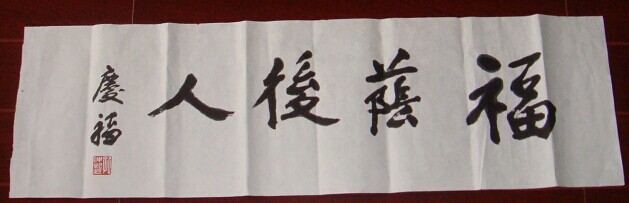 福蔭後人
慶福